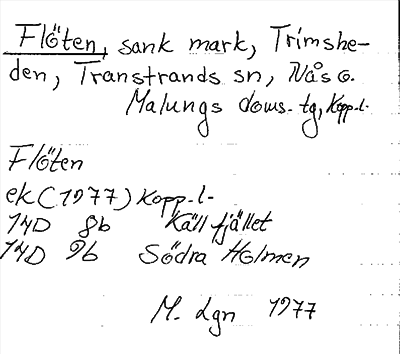 Flöten, sank mark, Trimshe-
den, Transtrands sn, Nås o.
Malungs doms. tg, Kopp.l.
Flöten
ek (1977) Kopp-l-
14D 8b Källfjället
14D 9b Södra Holmen
M. Lgn 1977